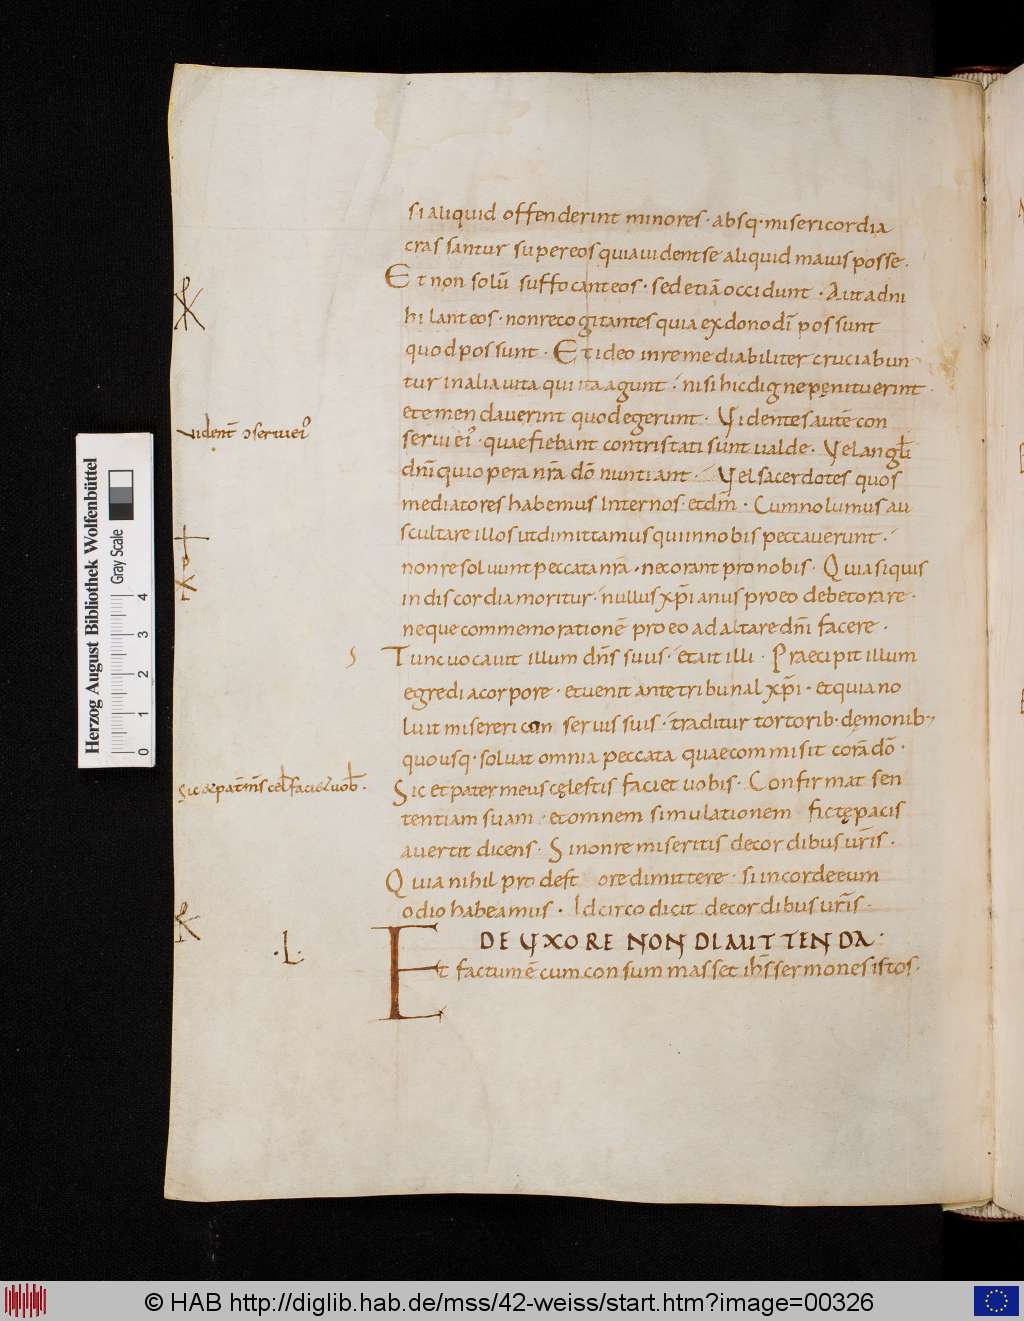 si aliquid offenderint minores · absq· misericordia
crassantur super eos quia uident se aliquid mauis posse ·
Et non solū suffocant eos · sed etiā occidunt · Aut adni
hilant eos · non recogitantes quia ex dono dī possunt
quod possunt · Et ideo inremediabiliter cruciabun
tur in alia uita qui ita agunt · nisi hic digne pęnituerint ·
et emendauerint quod egerunt · Videntes autē con
serui ei' · quae fiebant contristati sunt ualde · Vel angłi
dnī qui opera nr̄a dō nuntiant · Vel sacerdotes quos
mediatores habemus inter nos · et dm̄ · Cum nolumus au
scultare illos ut dimittamus qui in nobis peccauerunt ·
non resoluunt peccata nr̄a · nec orant pro nobis · Quia siquis
in discordia moritur · nullus xp̄ianus pro eo debet orare ·
neque commemorationē pro eo ad altare dnī facere ·
Tunc uocauit illum dn̄s suus · et ait illi · Praecipit illum
egredi a corpore · et uenit ante tribunal xp̄i · et quia no
luit misereri con seruis suis · traditur tortorib· dęmonib·
quousq· soluat omnia peccata quae commisit corā dō ·
Sic et pater meus cęlestis faciet uobis · Confirmat sen
tentiam suam · et omnem simulationem fictę pacis
auertit dicens · Si non remiseritis de cordibus ur̄is ·
Quia nihil prodest ore dimittere · si in corde eum
odio habeamus · Idcirco dicit de cordibus ur̄is ·
DE VXORE NON DIMITTENDA ·
Et factum ē cum consummasset ih̄s sermones istos ·
uident̄ ɔserui ei'
S
Sic & pat̄ m̄s cel̄ faciet uob̄ ·
· L ·
Herzog August Bibliothek Wolfenbüttel
Gray Scale
0 1 2 3 4
© HAB http://diglib.hab.de/mss/42-weiss/start.htm?image=00326